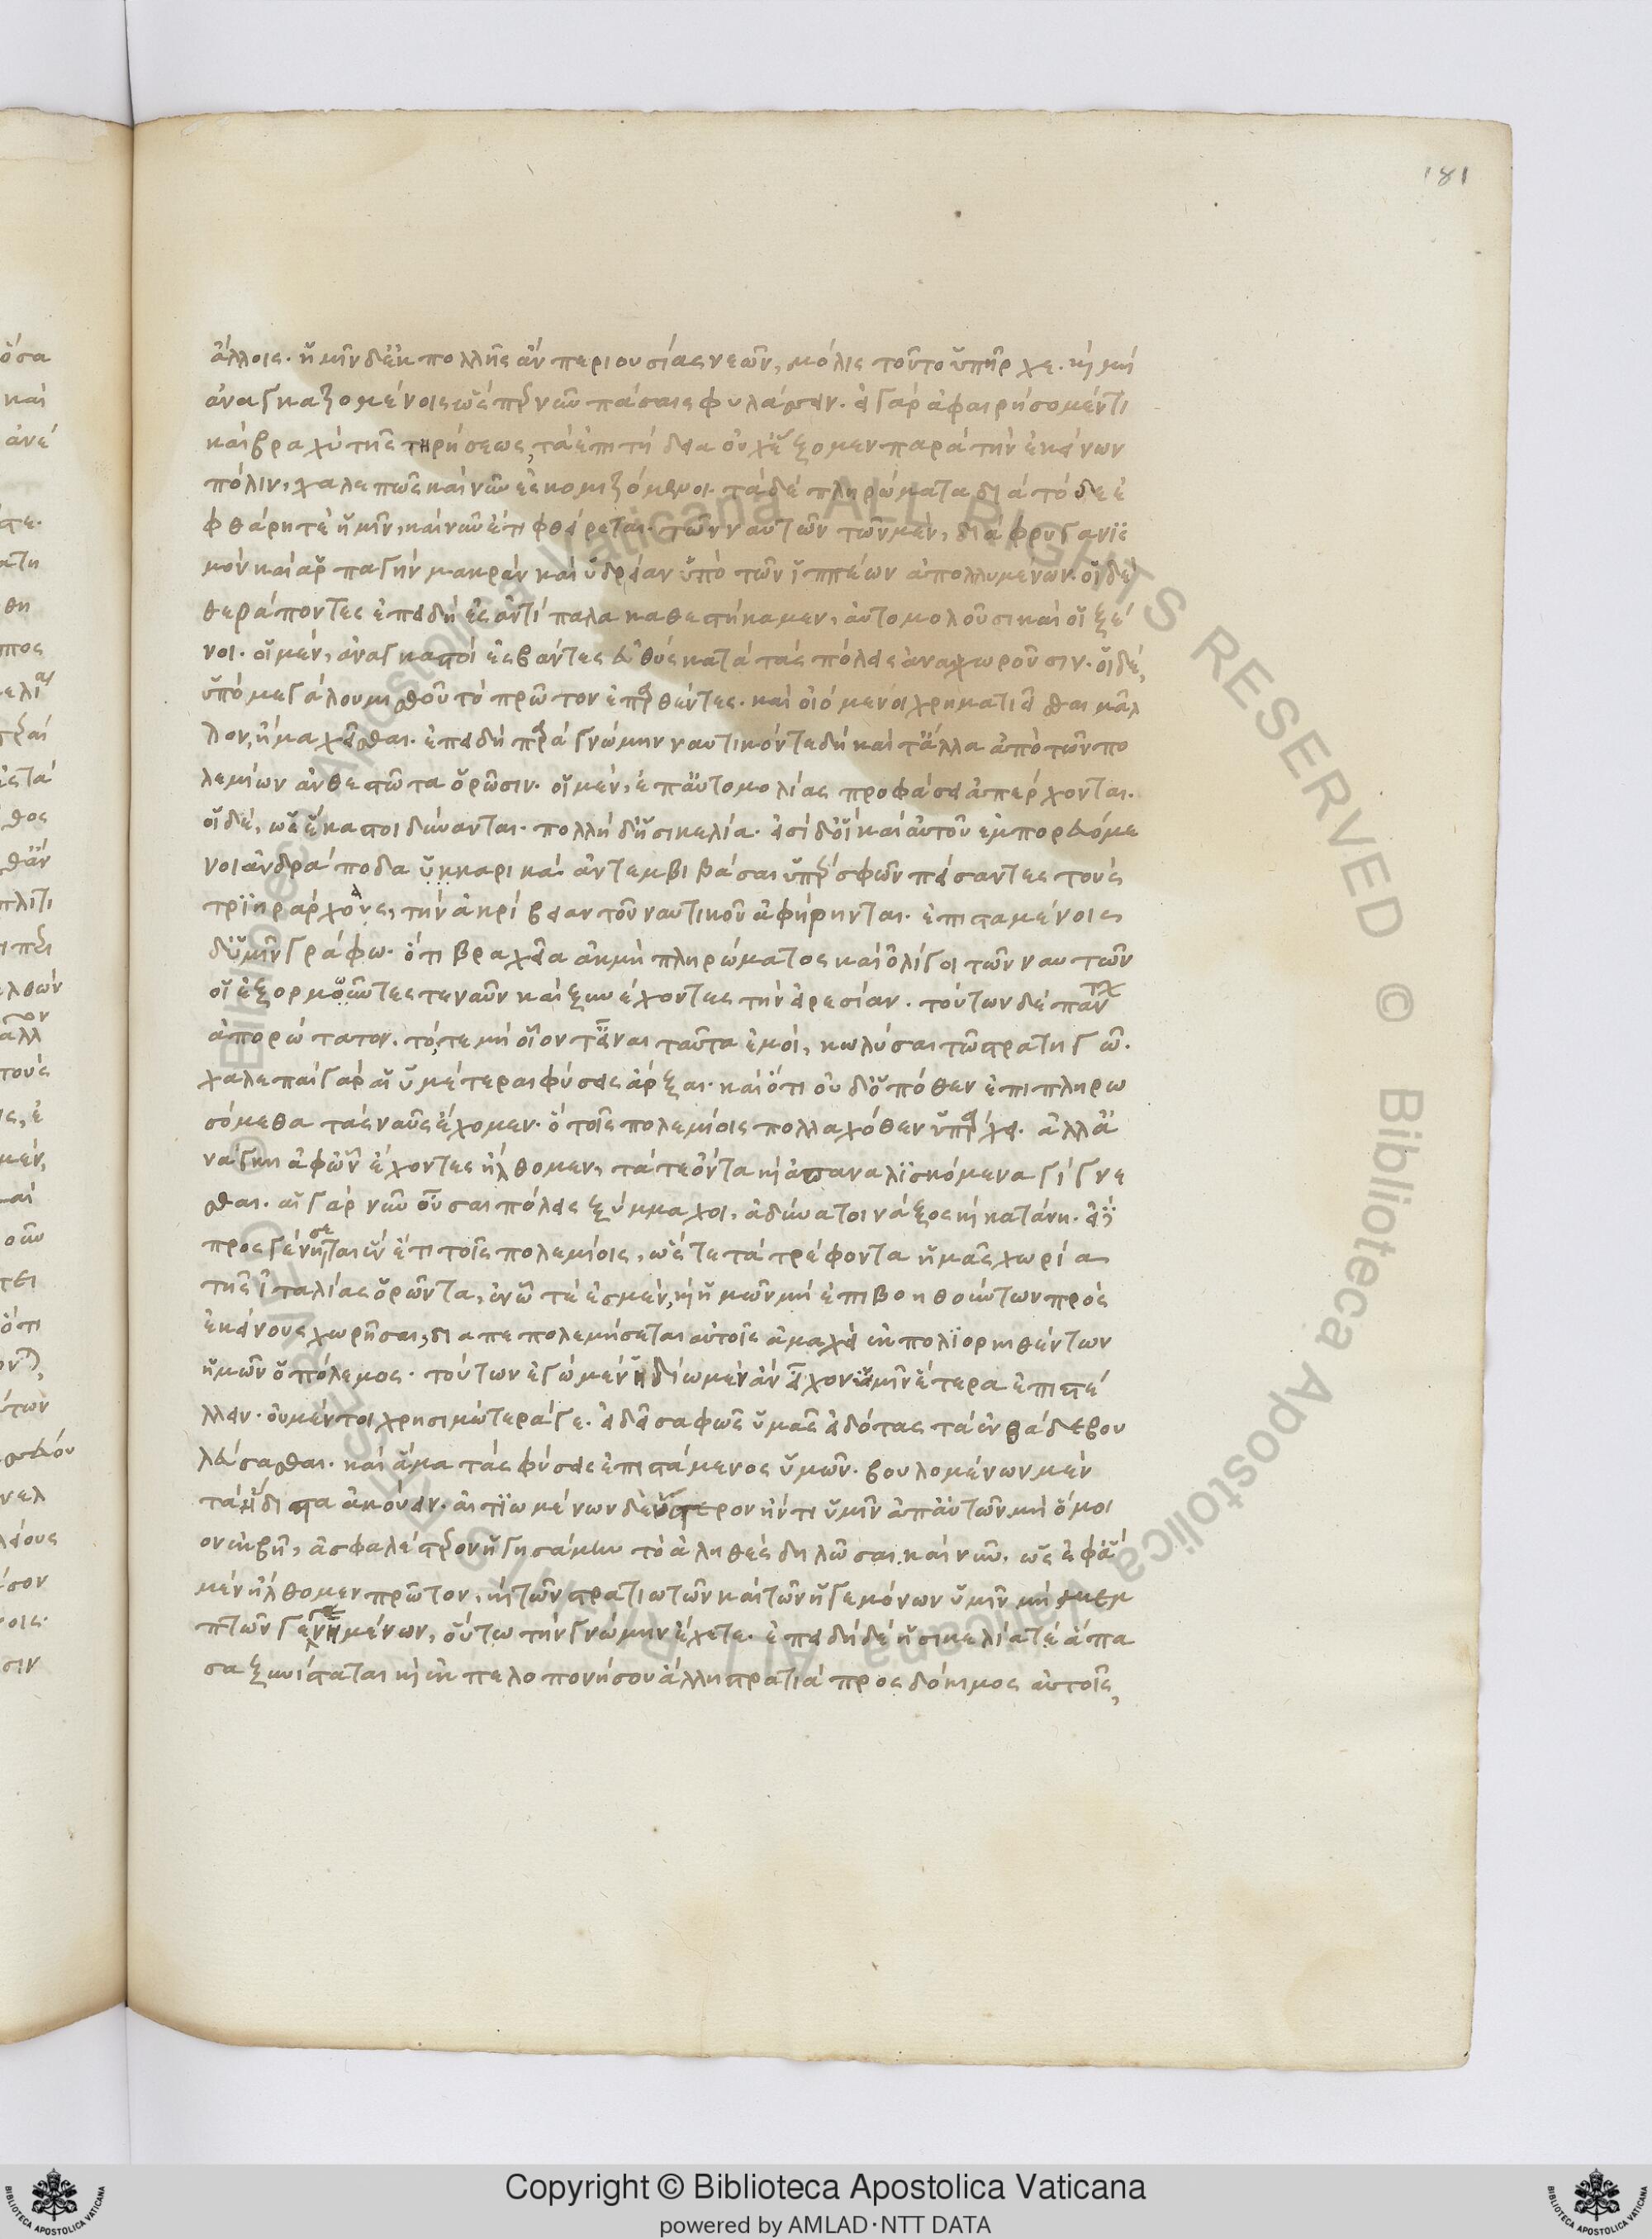 181
ἄλλοις. ἡμῖν δ' ἐκ πολλῆς ἂν περιουσίας νεῶν, μόλις τοῦτο ὑπῆρχε. καὶ μὴ
ἀναγκαζομένοις ὥσπερ νῦν πάσαις φυλάσσειν. εἰ γὰρ ἀφαιρήσομέν τι
καὶ βραχὺ τῆς τηρήσεως, τὰ ἐπιτήδεια οὐχ ἕξομεν παρὰ τὴν ἐκείνων
πόλιν, χαλεπῶς καὶ νῦν ἐσκομιζόμενοι. τὰ δὲ πληρώματα διὰ τόδε ἐ
φθάρη τὲ ἡμῖν, καὶ νῦν ἔτι φθείρεται. τῶν ναυτῶν τῶν μὲν, διὰ φρυγανισ
μὸν καὶ ἁρπαγὴν μακρὰν καὶ ὑδρείαν ὑπὸ τῶν ἱππέων ἀπολλυμένων. οἱ δὲ
θεράποντες ἐπειδὴ ἐς ἀντίπαλα καθεστήκαμεν, αὐτομολοῦσι καὶ οἱ ξέ
νοι. οἱ μὲν, ἀναγκαστοὶ ἐσβάντες εὐθὺς κατὰ τὰς πόλεις ἀναχωροῦσιν. οἱ δὲ,
ὑπὸ μεγάλου μισθοῦ τὸ πρῶτον ἐπαρθέντες. καὶ οἰόμενοι χρηματιεῖσθαι μᾶλ
λον, ἢ μαχεῖσθαι. ἐπειδὴ παρὰ γνώμην ναυτικόν τε δὴ καὶ τἄλλα ἀπὸ τῶν πο
λεμίων ἀνθεστῶτα ὁρῶσιν. οἱ μὲν, ἐπ' αὐτομολίας προφάσει ἀπέρχονται.
οἱ δὲ, ὡς ἕκαστοι δύνανται. πολλὴ δ' ἡ σικελία. εἰσὶ δ' οἳ καὶ αὐτοῦ ἐμπορευόμε
νοι ἀνδράποδα ὑκκαρικὰ ἀντεμβιβάσαι ὑπὲρ σφῶν πείσαντες τοὺς
τριηράρχους, τὴν ἀκρίβειαν τοῦ ναυτικοῦ ἀφῄρηνται. ἐπισταμένοις
δ' ὑμῖν γράφω. ὅτι βραχεῖα ἀκμὴ πληρώματος καὶ ὀλίγοι τῶν ναυτῶν
οἱ ἐξορμῶντες τε ναῦν καὶ ξυνέχοντες τὴν εἰρεσίαν. τούτων δὲ πάντων
ἀπορώτατον. τό, τε μὴ οἷόν τ' εἶναι ταῦτα ἐμοὶ, κωλῦσαι τῶ στρατηγῶ.
χαλεπαὶ γὰρ αἱ ὑμέτεραι φύσεις ἄρξαι. καὶ ὅτι οὐδ' ὁπόθεν ἐπιπληρω
σόμεθα τὰς ναῦς ἔχομεν. ὃ τοῖς πολεμίοις πολλαχόθεν ὑπάρχει. ἀλλ' ἀ
νάγκη ἀφ' ὧν ἔχοντες ἤλθομεν, τά τε ὄντα καὶ ἀπαναλισκόμενα γίγνε
σθαι. αἱ γὰρ νῦν οὖσαι πόλεις ξύμμαχοι, ἀδύνατοι νάξος καὶ κατάνη. εἰ
προσγενήσεται ἓν ἔτι τοῖς πολεμίοις, ὥστε τὰ τρέφοντα ἡμᾶς χωρία
τῆς ἰταλίας ὁρῶντα, ἐν ὧ τέ ἐσμεν, καὶ ἡμῶν μὴ ἐπιβοηθούντων πρὸς
ἐκείνους χωρῆσαι, διαπεπολεμήσεται αὐτοῖς ἀμαχεὶ ἐκπολιορκηθέντων
ἡμῶν ὁ πόλεμος. τούτων ἐγὼ μὲν ἡδίω μὲν ἂν εἶχον ὑμῖν ἕτερα ἐπιστέ
λλειν. οὐ μέντοι χρησιμώτερά γε. εἰ δεῖ σαφῶς ὑμᾶς εἰδότας τὰ ἐνθάδε βου
λεύσασθαι. καὶ ἅμα τὰς φύσεις ἐπιστάμενος ὑμῶν. βουλομένων μὲν
τὰ ἥδιστα ἀκούειν. αἰτιωμένων δὲ ὕστερον ἤν τι ὑμῖν ἀπ' αὐτῶν μὴ ὅμοι
ον ἐκβῆ, ἀσφαλέστερον ἡγησάμην τὸ ἀληθὲς δηλῶσαι. καὶ νῦν, ὡς ἐφ' ἃ
μὲν ἤλθομεν πρῶτον, καὶ τῶν στρατιωτῶν καὶ τῶν ἡγεμόνων ὑμῖν μὴ μεμ
πτῶν γεγενημένων, οὕτω τὴν γνώμην ἔχετε. ἐπειδὴ δὲ ἡ σικελία τὲ ἅπα
σα ξυνίσταται καὶ ἐκ πελοπονήσου ἄλλη στρατιὰ προσδόκιμος αὐτοῖς,
Copyright © Biblioteca Apostolica Vaticana
powered by AMLAD·NTT DATA